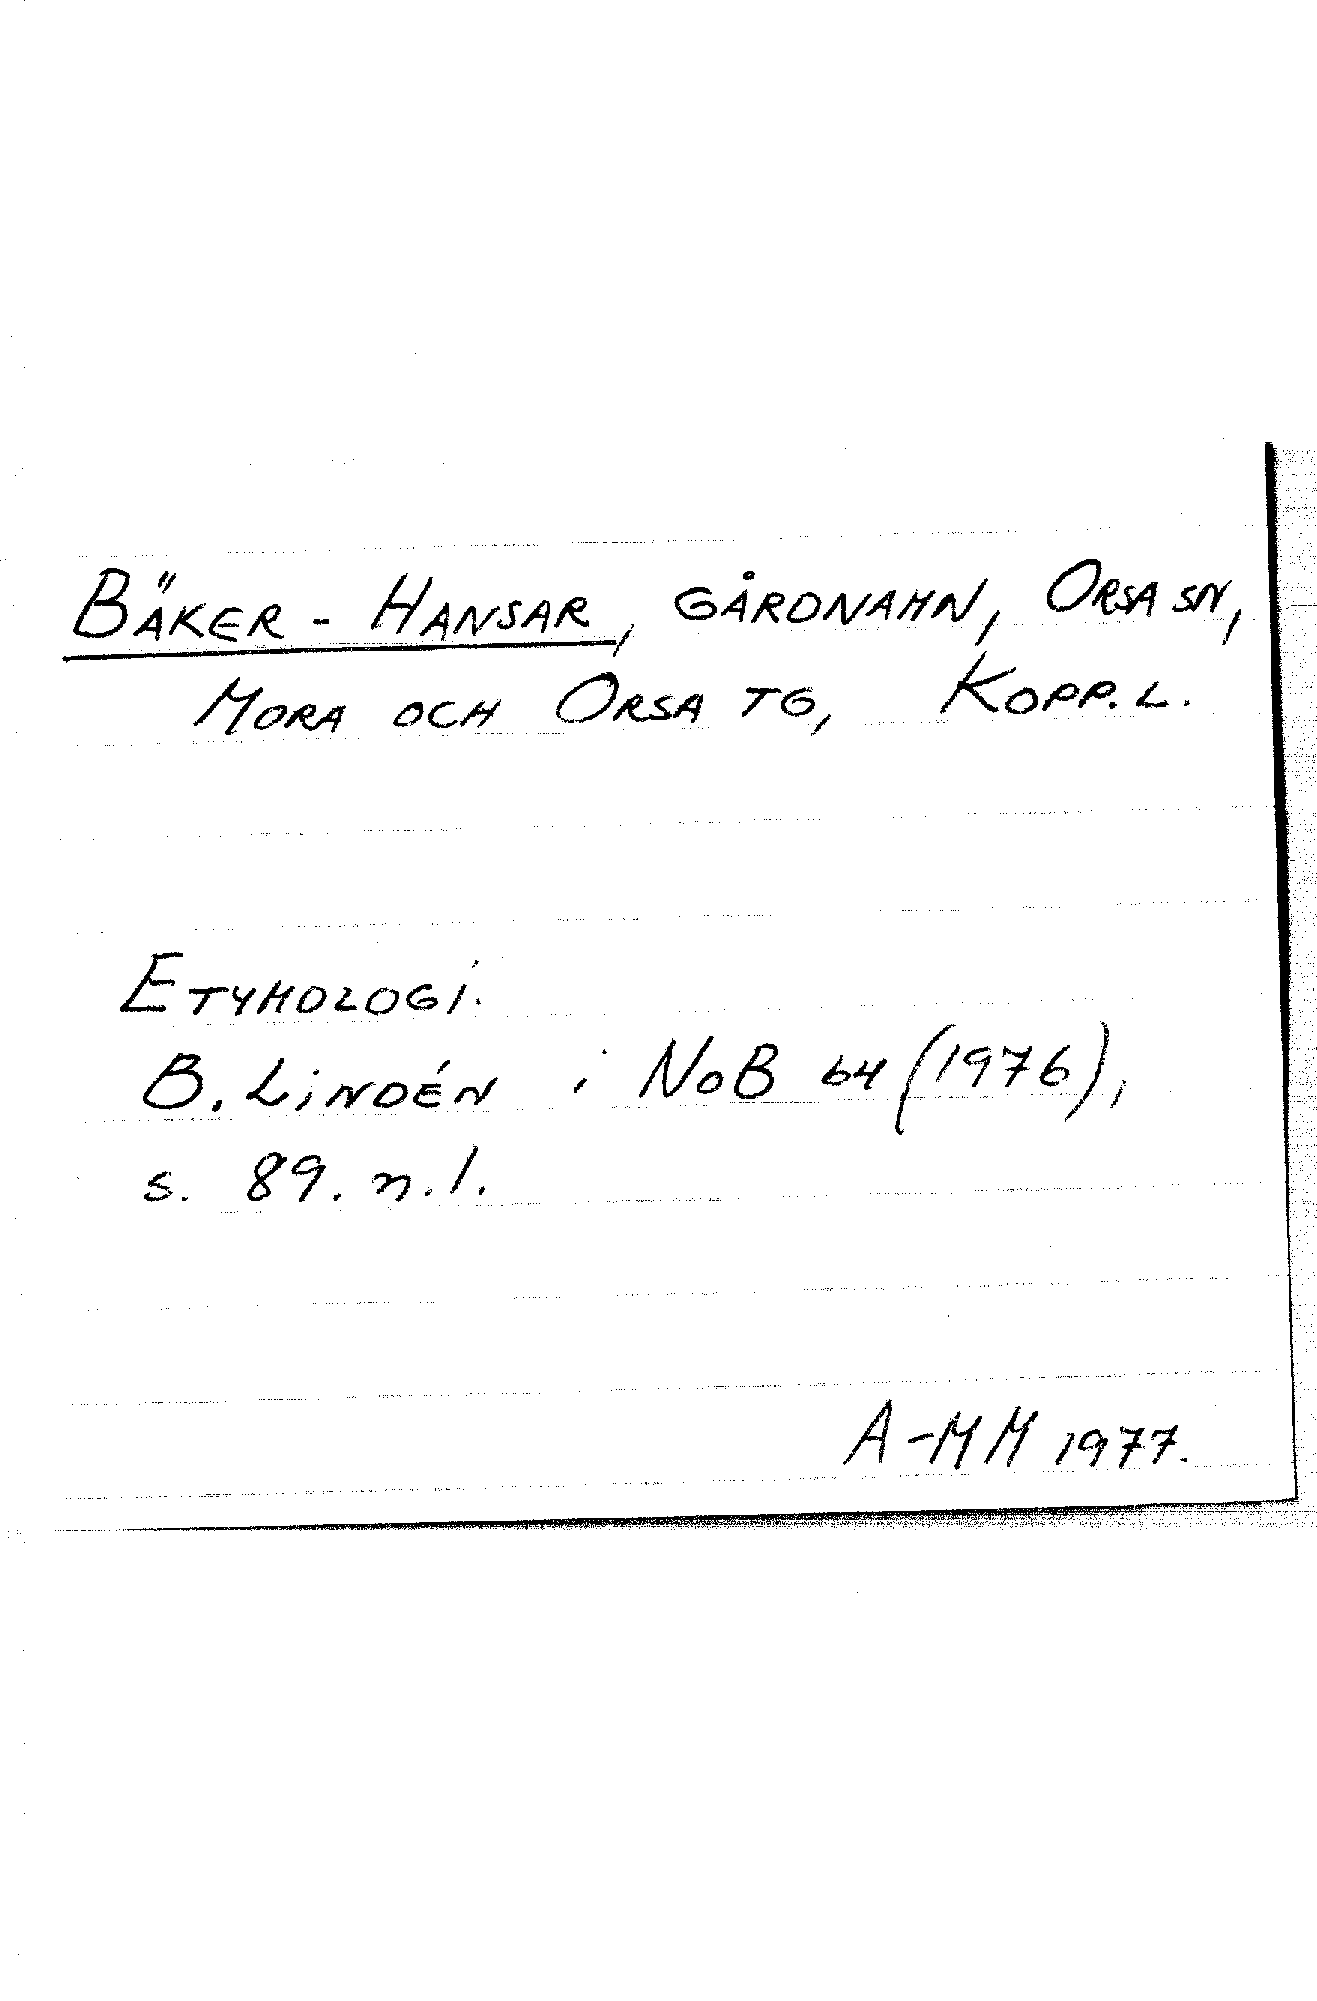 BÄKER - HANSAR, GÅRDNAMN, ORSA SN,
MORA OCH ORSA TG, KOPP. L.
ETYMOLOGI.
B. LINDÉN i NoB 64 (1976),
s. 89. n. 1.
A-MM 1977.